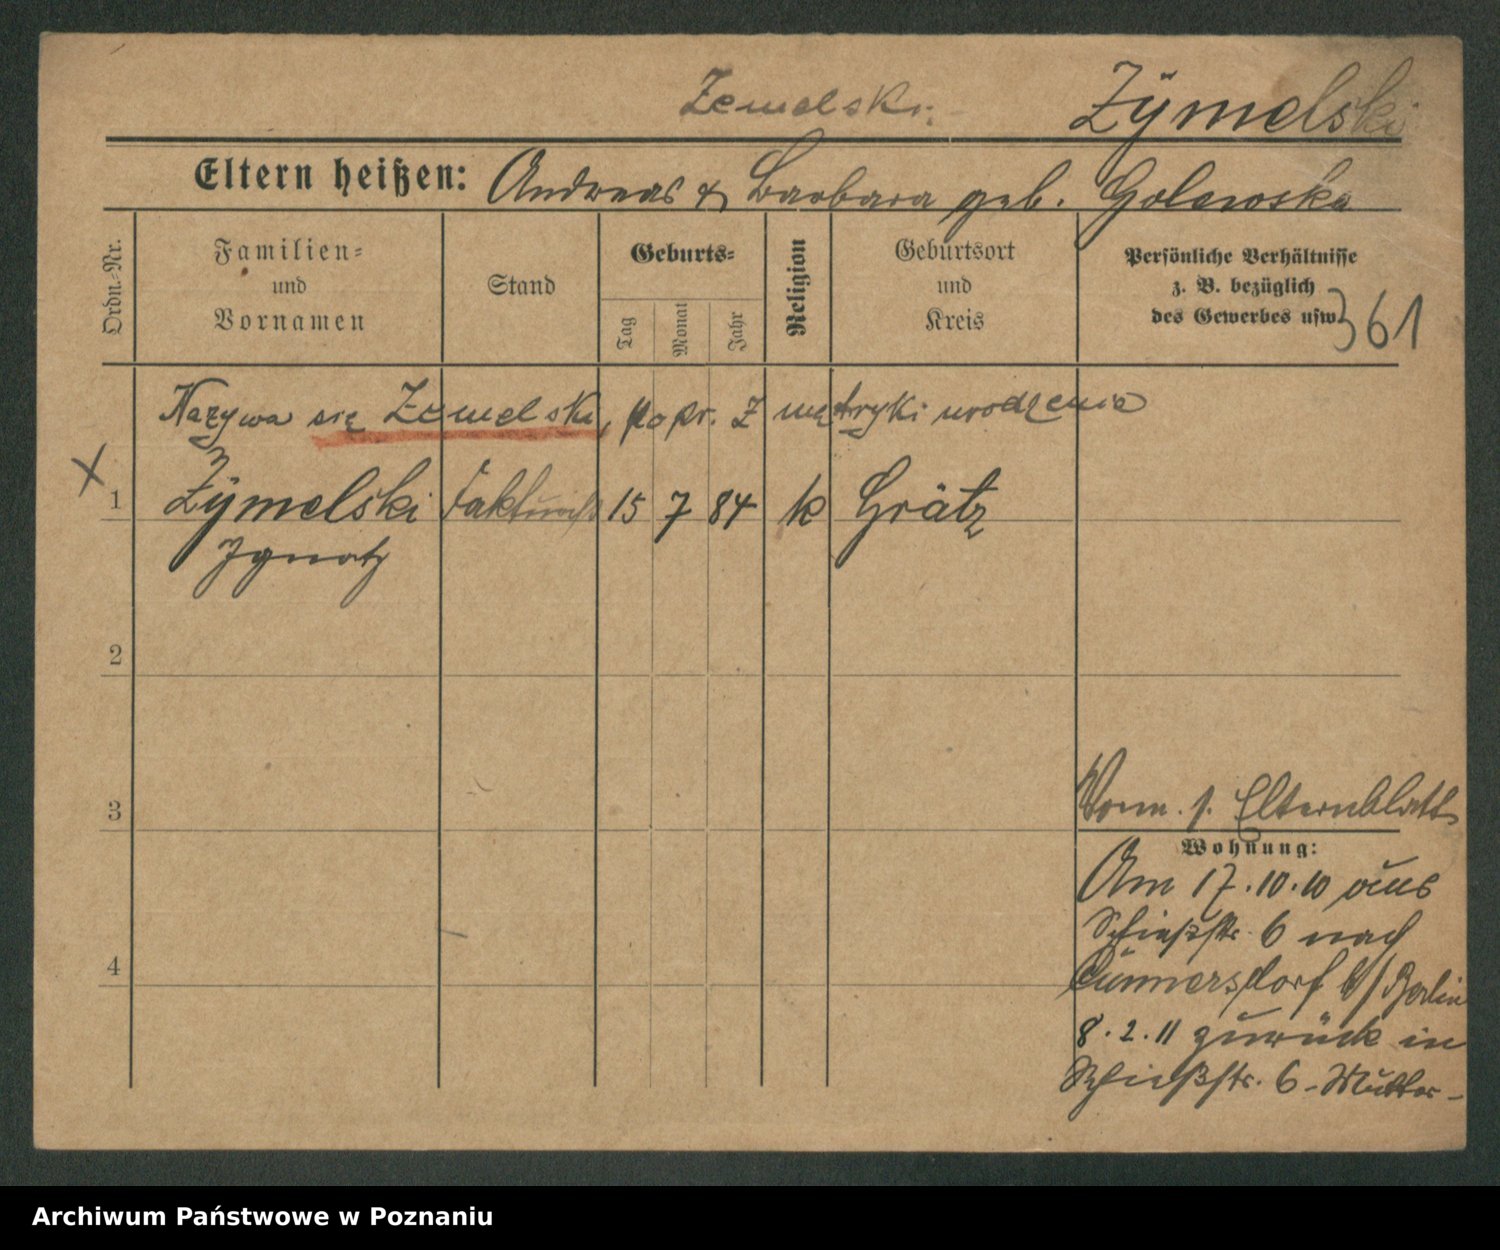 Zemelski Zÿmelski
Eltern heißen: Andreas & Barbara geb. Golewska
Ordn.-Nr.
Familien-
und
Vornamen
Stand
Geburts-
Tag
Monat
Jahr
Religion
Geburtsort
und
Kreis
Persönliche Verhältnisse
z. B. bezüglich
des Gewerbes usw.
361
Nazywa się Zemelski, popr. z metryki urodzenia
X
1 Zÿmelski 15 7 84 k Grätz
Ignatz
2
3
Vorm. s. Elternblatt
Wohnung:
Am 17.10.10 aus
Schießstr. 6 nach
4
b/Berlin
8.2.11 zurück in
Schießstr. 6 - Mutter -
Archiwum Państwowe w Poznaniu